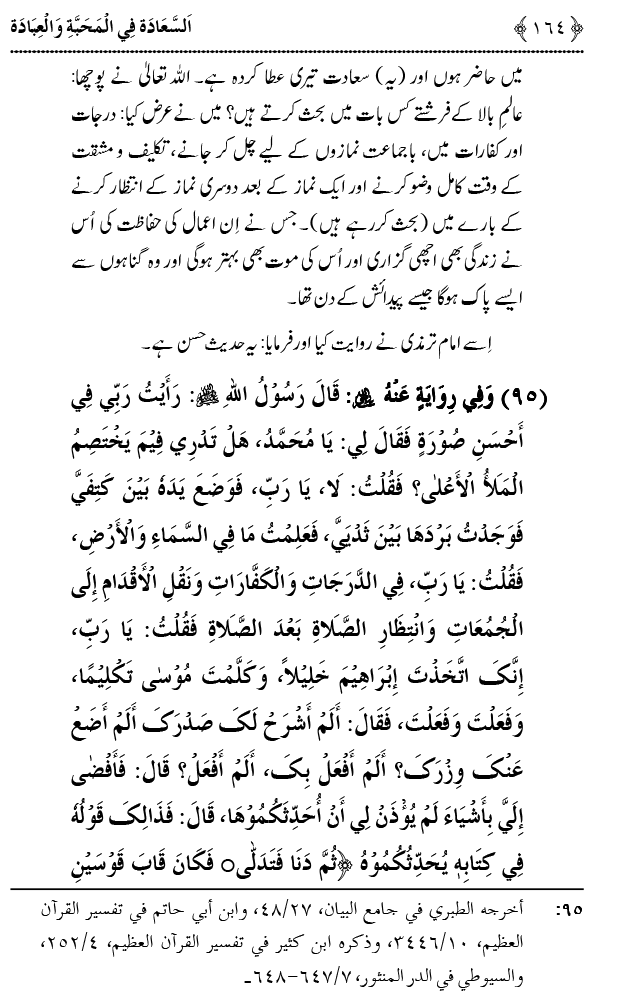 ﴿١٦٤﴾ اَلسَّعَادَة فِي الْمَحَبَّةِ وَالْعِبَادَة
میں حاضر ہوں اور (یہ) سعادت تیری عطا کردہ ہے۔ اللہ تعالیٰ نے پوچھا:
عالمِ بالا کے فرشتے کس بات میں بحث کرتے ہیں؟ میں نے عرض کیا: درجات
اور کفارات میں، باجماعت نمازوں کے لیے چل کر جانے، تکلیف و مشقت
کے وقت کامل وضو کرنے اور ایک نماز کے بعد دوسری نماز کے انتظار کرنے
کے بارے میں (بحث کر رہے ہیں)۔ جس نے اِن اعمال کی حفاظت کی اُس
نے زندگی بھی اچھی گزاری اور اُس کی موت بھی بہتر ہوگی اور وہ گناہوں سے
ایسے پاک ہوگا جیسے پیدائش کے دن تھا۔
اِسے امام ترمذی نے روایت کیا اور فرمایا: یہ حدیث حسن ہے۔
(٩٥) وَفِي رِوَايَةٍ عَنْهُ ﷺ: قَالَ رَسُوْلُ اللهِ ﷺ: رَأَيْتُ رَبِّي فِي
أَحْسَنِ صُوْرَةٍ فَقَالَ لِي: يَا مُحَمَّدُ، هَلْ تَدْرِي فِيْمَ يَخْتَصِمُ
الْمَلَأُ الْأَعْلٰى؟ فَقُلْتُ: لَا، يَا رَبِّ، فَوَضَعَ يَدَهٗ بَيْنَ كَتِفَيَّ
فَوَجَدْتُ بَرْدَهَا بَيْنَ ثَدْيَيَّ، فَعَلِمْتُ مَا فِي السَّمَاءِ وَالْأَرْضِ،
فَقُلْتُ: يَا رَبِّ، فِي الدَّرَجَاتِ وَالْكَفَّارَاتِ وَنَقْلِ الْأَقْدَامِ إِلَى
الْجُمُعَاتِ وَانْتِظَارِ الصَّلَاةِ بَعْدَ الصَّلَاةِ فَقُلْتُ: يَا رَبِّ،
إِنَّكَ اتَّخَذْتَ إِبْرَاهِيْمَ خَلِيْلاً، وَكَلَّمْتَ مُوْسٰى تَكْلِيْمًا،
وَفَعَلْتَ وَفَعَلْتَ، فَقَالَ: أَلَمْ أَشْرَحْ لَكَ صَدْرَكَ أَلَمْ أَضَعْ
عَنْكَ وِزْرَكَ؟ أَلَمْ أَفْعَلْ بِكَ، أَلَمْ أَفْعَلْ؟ قَالَ: فَأَفْضٰى
إِلَيَّ بِأَشْيَاءَ لَمْ يُؤْذَنْ لِي أَنْ أُحَدِّثَكُمُوْهَا، قَالَ: فَذَالِكَ قَوْلُهٗ
فِي كِتَابِهٖ يُحَدِّثُكُمُوْهُ ﴿ثُمَّ دَنَا فَتَدَلّٰى٥ فَكَانَ قَابَ قَوْسَيْنِ
٩٥: أخرجه الطبري في جامع البيان، ٢٧/٤٨، وابن أبي حاتم في تفسير القرآن
العظيم، ١٠/٣٤٤٦، وذكره ابن كثير في تفسير القرآن العظيم، ٤/٢٥٢،
والسيوطي في الدر المنثور، ٧/٦٤٧-٦٤٨۔